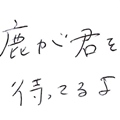 鹿が君を
待ってるよ